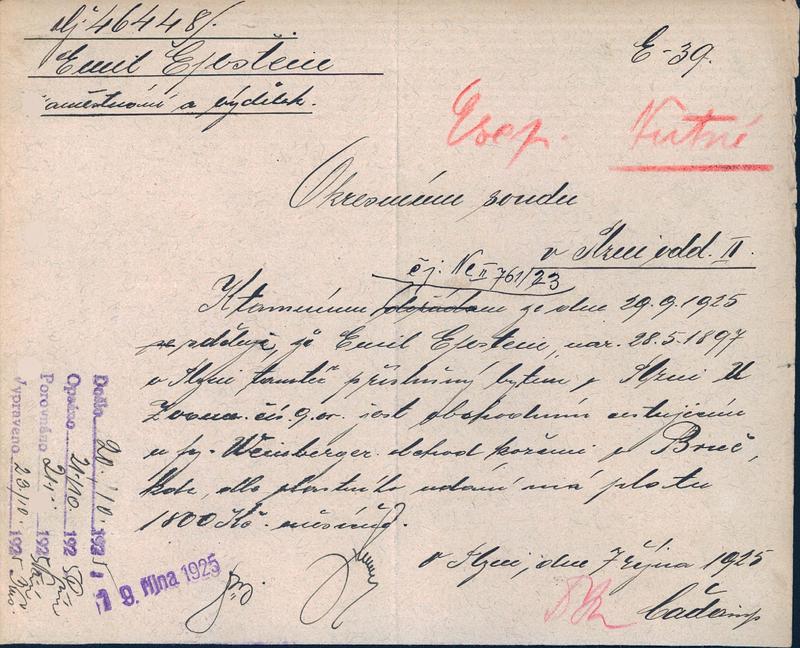 čj 46448/.
Emil Epstein
zaměstnání a výdělek.
E-39.
Exep. Nutné
Okresnímu soudu
v Plzni odd. II.
čj. Nc II 761/23
K tamnímu ze dne 29.9.1925
sděluje, že Emil Epstein, nar. 28.5.1897
v Plzni tamtéž příslušný bytem v Plzni U
Zvonu čís. 9. or. jest obchodním cestujícím
u fy. Weinsberger obchod kožemi v Brně,
kde, dle vlastního udání má platu
1800 Kč. měsíčně.
v Plzni, dne 7 října 1925
Došlo 20/10 1925
Opsáno 21/10 192
Porovnáno 192
Vypraveno 23/10 192
19. října 1925